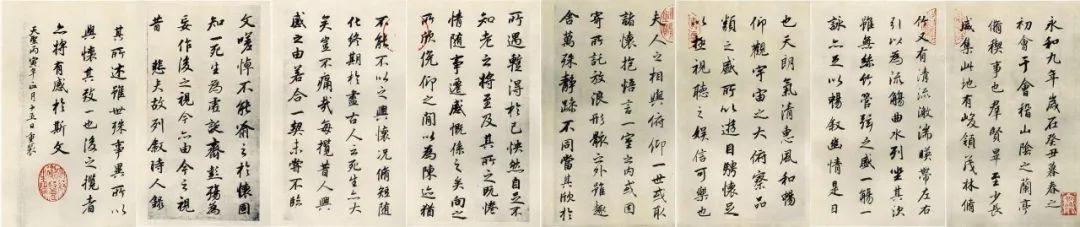 永和九年歲在癸丑暮春之
初會于會稽山陰之蘭亭
脩稧事也群賢畢至少長
咸集此地有峻領茂林脩
竹又有清流激湍暎帶左右
引以為流觴曲水列坐其次
雖無絲竹管弦之盛一觴一
詠亦足以暢敘幽情是日
也天朗氣清惠風和暢
仰觀宇宙之大俯察品
類之盛所以遊目騁懷足
以極視聽之娛信可樂也
夫人之相與俯仰一世或取
諸懷抱悟言一室之內或因
寄所託放浪形骸之外雖趣
舍萬殊靜躁不同當其欣於
所遇蹔得於己怏然自足不
知老之將至及其所之既惓
情隨事遷感慨係之矣向之
所欣俛仰之閒以為陳迹猶
不能不以之興懷況脩短隨
化終期於盡古人云死生亦大
矣豈不痛哉每攬昔人興
感之由若合一契未嘗不臨
文嗟悼不能喻之於懷固
知一死生為虛誕齊彭殤為
妄作後之視今亦由今之視
昔 悲夫故列敘時人錄
其所述雖世殊事異所以
興懷其致一也後之攬者
亦將有感於斯文
天聖丙寅年正月二十五日重裝